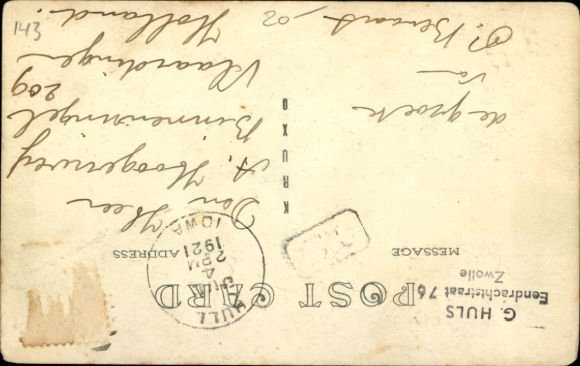 G. HULS
Eendrachtstraat 76
Zwolle
POST CARD
MESSAGE
ADDRESS
HULL
4 PM
1921
IOWA
KRUXO
de groeten
van
P. Beraart
Den Heer
A. Hoogerwerf
Binnensingel
209
Vlaardingen
Holland.
143